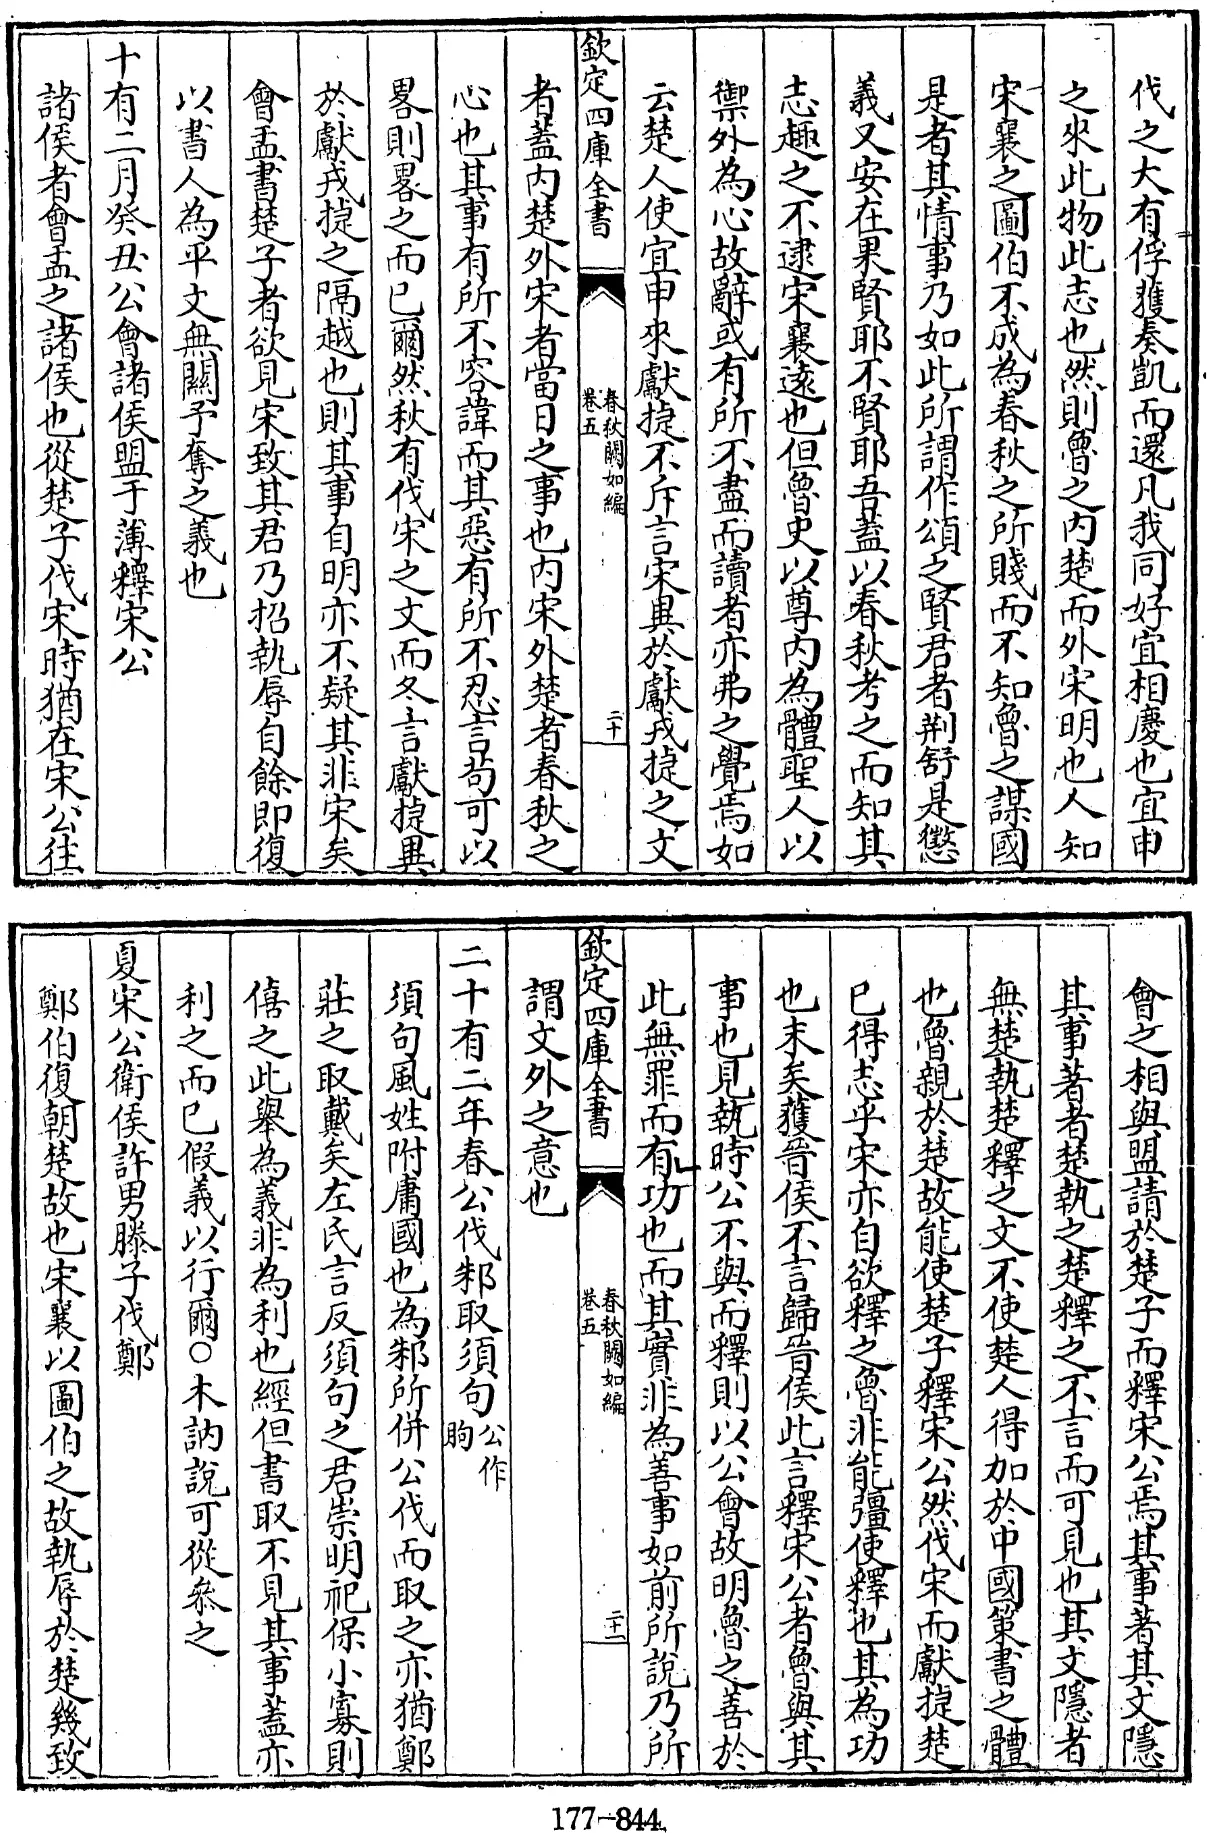 伐之大有俘獲奏凱而還凡我同好宜相慶也宜申
之來此物此志也然則魯之内楚而外宋明也人知
宋襄之圖伯不成為春秋之所賤而不知魯之謀國
是者其情事乃如此所謂作頌之賢君者荆舒是懲
義又安在果賢耶不賢耶吾蓋以春秋考之而知其
志趣之不逮宋襄遠也但魯史以尊内為體聖人以
禦外為心故辭或有所不盡而讀者亦弗之覺焉如
云楚人使宜申來獻捷不斥言宋異於獻戎捷之文
欽定四庫全書
春秋闕如編
卷五
二十
者蓋内楚外宋者當日之事也内宋外楚者春秋之
心也其事有所不容諱而其惡有所不忍言苟可以
畧則畧之而已爾然秋有伐宋之文而冬言獻捷異
於獻戎捷之隔越也則其事自明亦不疑其非宋矣
會盂書楚子者欲見宋致其君乃招執辱自餘即復
以書人為平文無關予奪之義也
十有二月癸丑公會諸侯盟于薄釋宋公
諸侯者會盂之諸侯也從楚子伐宋時猶在宋公往
會之相與盟請於楚子而釋宋公焉其事著其文隱
其事著者楚執之楚釋之不言而可見也其文隱者
無楚執楚釋之文不使楚人得加於中國策書之體
也魯親於楚故能使楚子釋宋公然伐宋而獻捷楚
已得志乎宋亦自欲釋之魯非能彊使釋也其為功
也末矣獲晉侯不言歸晉侯此言釋宋公者魯與其
事也見執時公不與而釋則以公會故明魯之善於
此無罪而有功也而其實非為善事如前所說乃所
欽定四庫全書
春秋闕如編
卷五
二十一
謂文外之意也
二十有二年春公伐邾取須句公作朐
須句風姓附庸國也為邾所併公伐而取之亦猶鄭
莊之取戴矣左氏言反須句之君崇明祀保小寡則
僖之此舉為義非為利也經但書取不見其事蓋亦
利之而已假義以行爾○木訥說可從叅之
夏宋公衛侯許男滕子伐鄭
鄭伯復朝楚故也宋襄以圖伯之故執辱於楚幾致
177-844